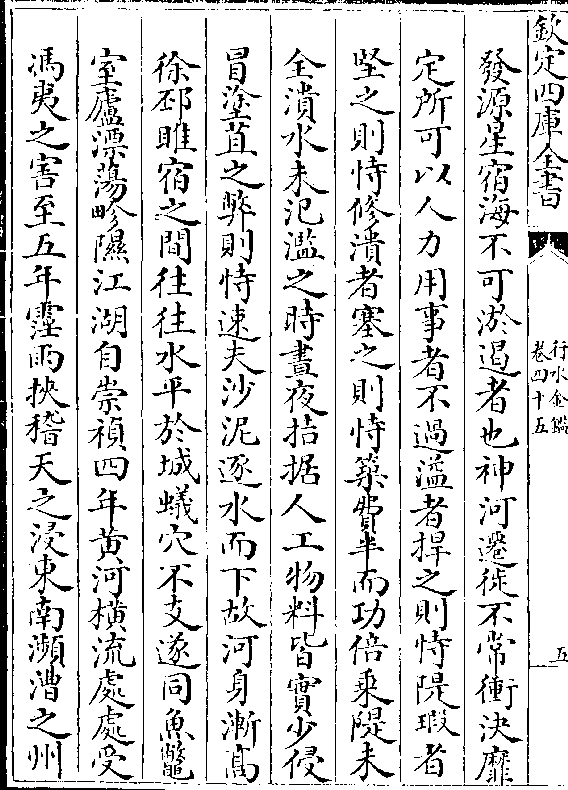 欽定四庫全書
行水金鑑
卷四十五
五
發源星宿海不可淤遏者也神河遷徙不常衝決靡
定所可以人力用事者不過溢者捍之則恃隄瑕者
堅之則恃修潰者塞之則恃築費半而功倍乘隄未
全潰水未氾濫之時晝夜拮据人工物料皆實少侵
冒塗苴之弊則恃速夫沙泥逐水而下故河身漸髙
徐邳睢宿之間往往水平於城蟻穴不支遂同魚鼈
室廬漂蕩畛隰江湖自崇禎四年黄河橫流處處受
馮夷之害至五年霪雨挾稽天之浸東南瀕漕之州